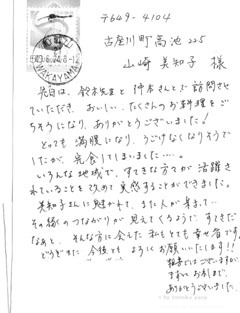 〒649-4104
古座川町高池225
山崎 美知子 様
先日は、鈴木先生と鈴木さんとで訪問させ
ていただき、おいしい、たくさんのお料理をご
ちそうになり、ありがとうございました!
とても満腹になり、うごけなくなりそうで
したが、完食してしまいました…。
いろんな地域で、すてきな方々が活躍さ
れていることを改めて実感することができました。
美知子さんに魅かれて、また人が集まって…
その縁のつながりが見えてくるようで、すてきだ
なぁと、そんな方に会えた私もとても幸せ者です。
どうぞまた今後とも よろしくお願いいたします!!
略儀ではございますが、
まずは、お礼まで。
ありがとうございました。
WAKAYAMA